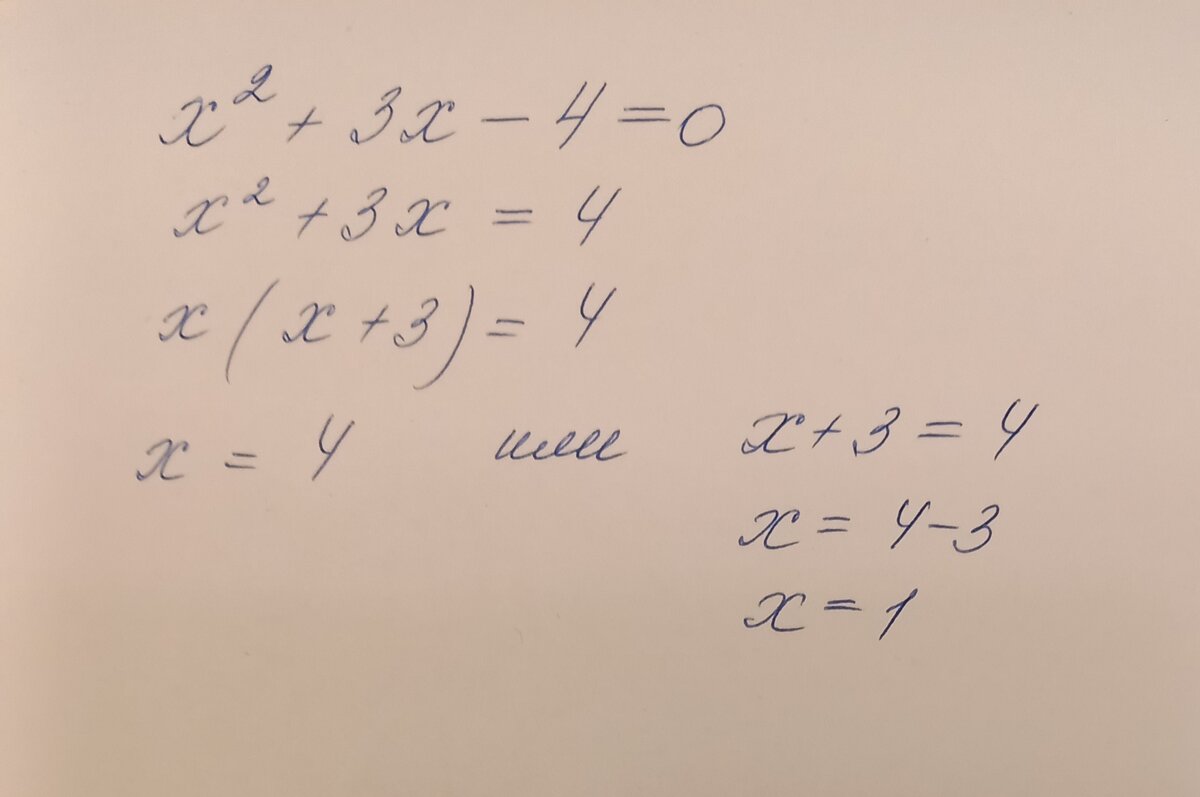 x² + 3x - 4 = 0
x² + 3x = 4
x(x + 3) = 4
x = 4 или x + 3 = 4
x = 4 - 3
x = 1